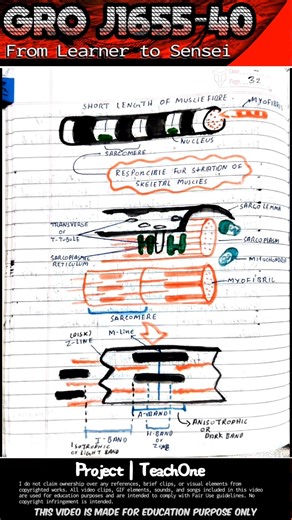 GRO J1655-40
From Learner to Sensei
32
SHORT LENGTH OF MUSCLE FIBRE
MYOFIBRIL
NUCLEUS
SARCOMERE
RESPONSIBLE FOR STRIATION OF
SKELETAL MUSCLES
SARCOLEMMA
TRANSVERSE
OR
T-TUBULE
SARCOPLASM
SARCOPLASMIC
RETICULUM
MITOCHONDRIA
MYOFIBRIL
SARCOMERE
(DISK)
Z-LINE
M-LINE
A-BAND
ANISOTROPHIC
OR
DARK BAND
I-BAND
H-BAND
OR
ZONE
ISOTROPHIC
OR LIGHT BAND
Project | TeachOne
I do not claim ownership over any references, brief clips, or visual elements from
copyrighted works. All video clips, GIF elements, sounds, and songs included in this video
are used for education purposes and are intended to comply with Fair Use guidelines. No
copyright infringement is intended.
THIS VIDEO IS MADE FOR EDUCATION PURPOSE ONLY